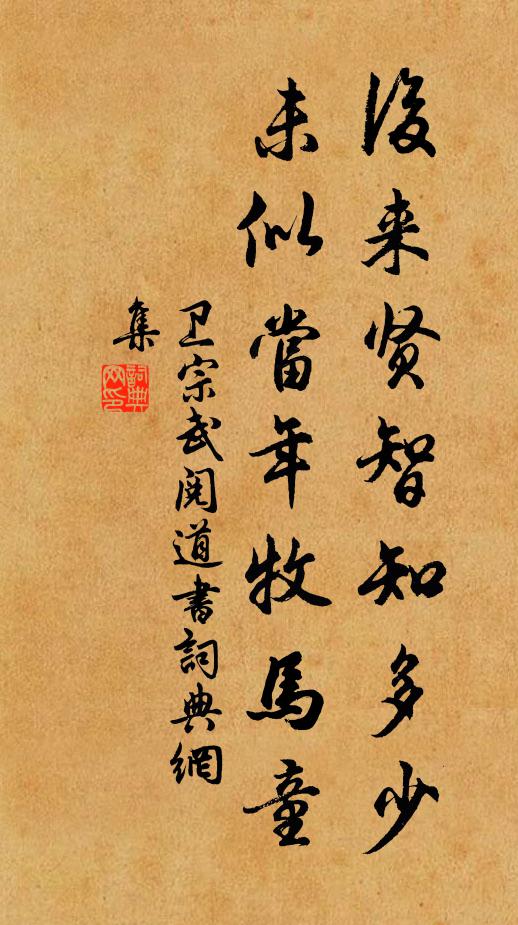 後来贤智知多少
未似當年牧馬童
卫宗武阅道書詞典網
集
詞典網印